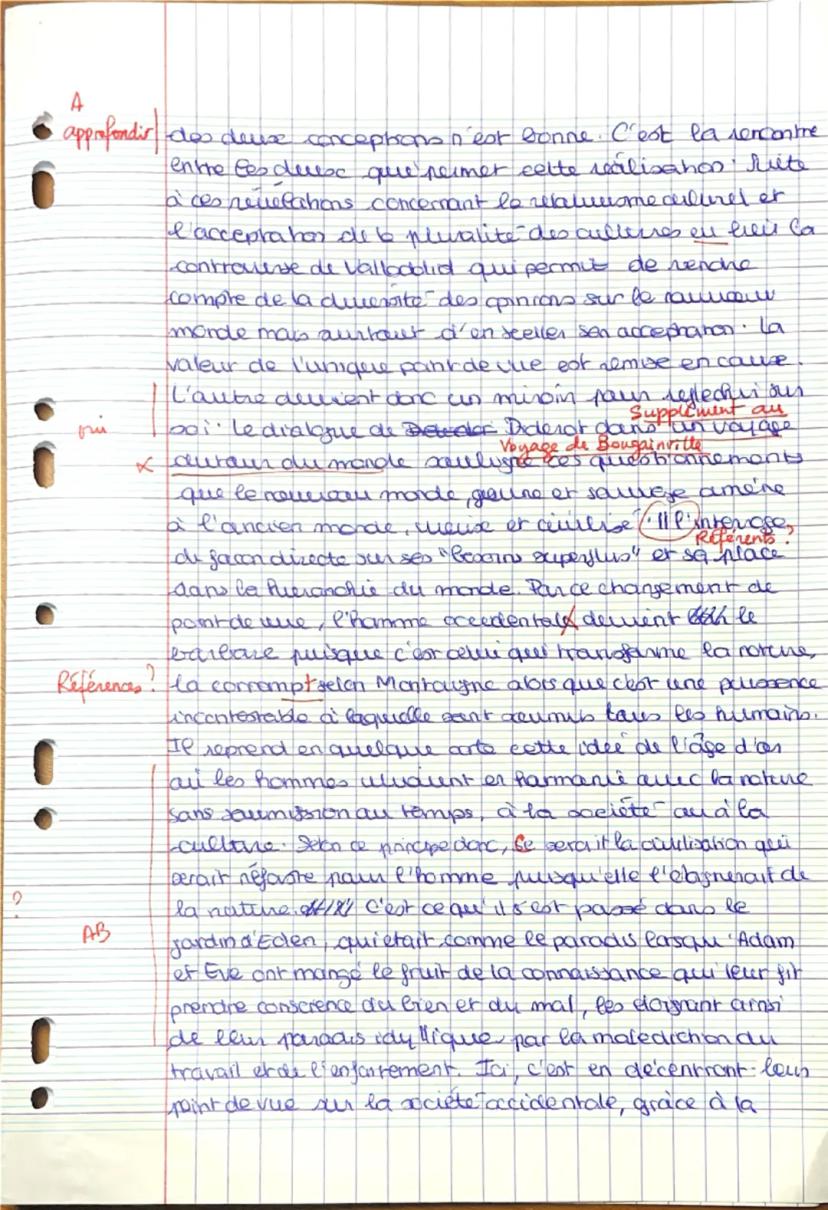 A
approfondir
des deux conceptions n'est bonne. C'est la rencontre
entre les deux que permet cette réalisation. Suite
à ces révélations concernant le relativisme culturel et
l'acceptation de la pluralité des cultures eu lieu la
controverse de Valladolid qui permit de rendre
compte de la diversité des opinions sur le nouveau
monde mais surtout d'en sceller son acceptation. La
valeur de l'unique point de vue est remise en cause.
L'autre devient donc un miroir pour réflechir sur
Supplément au
oui
soi. Le dialogue de Diderot dans un voyage
Voyage de Bougainville
autour du monde souligne ces questionnements
que le nouveau monde, jeune et sauvage amène
à l'ancien monde, vieux et civilisé. Il l'interroge,
Référents?
de façon directe sur ses "besoins superflus" et sa place
dans la hierarchie du monde. Par ce changement de
point de vue, l'homme occidentale devient le
barbare puisque c'est celui qui transforme la nature,
Références?
la corrompt selon Montaigne alors que c'est une puissance
incontestable à laquelle sont soumis tous les humains.
Il reprend en quelque sorte cette idée de l'âge d'or
où les hommes vivaient en harmonie avec la nature
sans soumission au temps, à la société ou à la
culture. Selon ce principe donc, ce serait la civilisation qui
serait néfaste pour l'homme puisqu'elle l'éloignerait de
?
la nature. C'est ce qu'il s'est passé dans le
AB
jardin d'Eden, qui était comme le paradis lorsqu'Adam
et Eve ont mangé le fruit de la connaissance qui leur fit
prendre conscience du bien et du mal, les éloignant ainsi
de leur paradis idyllique par la malediction du
travail et de l'enfantement. Ici, c'est en décentrant leur
point de vue sur la société occidentale, grâce à la